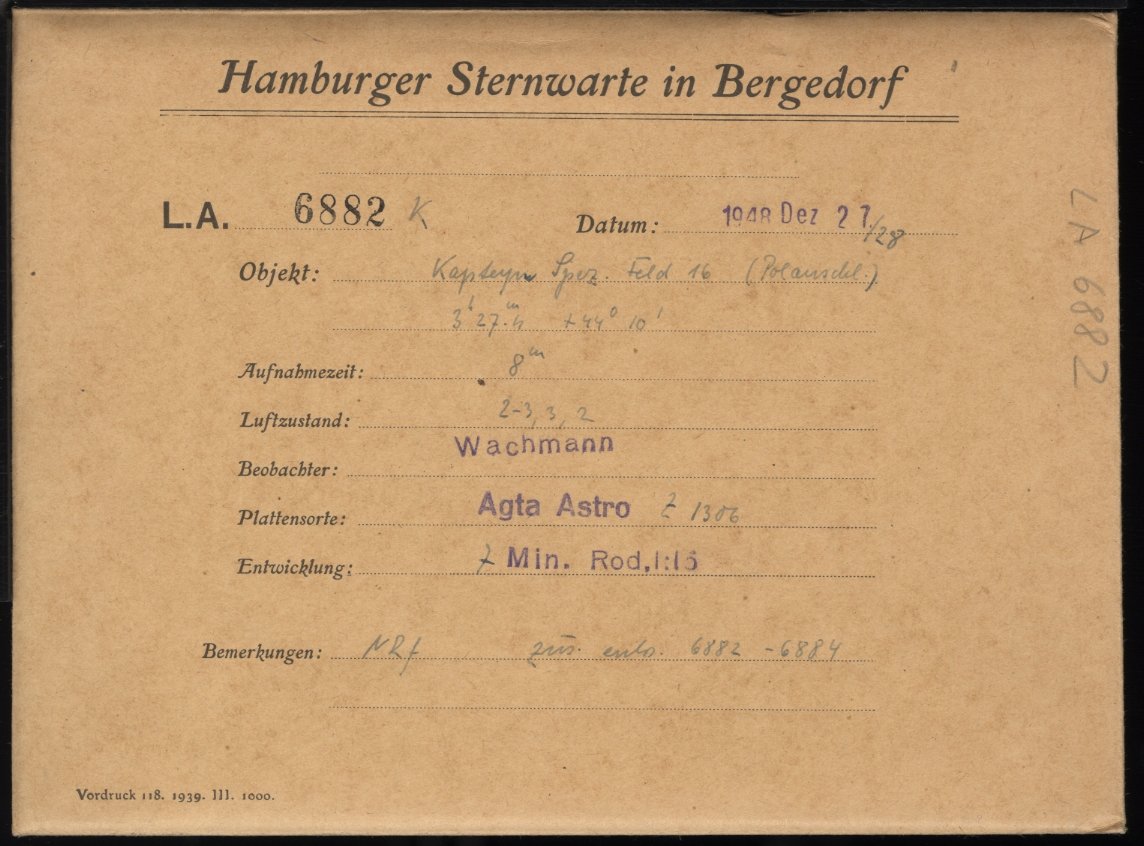 Hamburger Sternwarte in Bergedorf
L.A. 6882 K
Datum: 1948 Dez 27/28
Objekt: Kapteyn Spez. Feld 16 (Polanschl.)
3h 27.m5 +44° 10'
Aufnahmezeit: 8m
Luftzustand: 2-3, 3, 2
Beobachter: Wachmann
Plattensorte: Agfa Astro Z 1306
Entwicklung: 7 Min. Rod. 1:15
Bemerkungen: NRf zus. entw. 6882 - 6884
Vordruck 118. 1939. III. 1000.
LA 6882